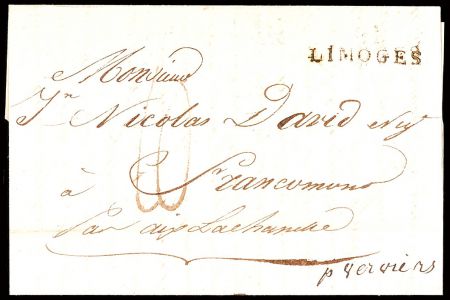 LIMOGES
Monsieur
Jn Nicolas David Neg
à Francomont
Par aix Lachapelle
p Verviers